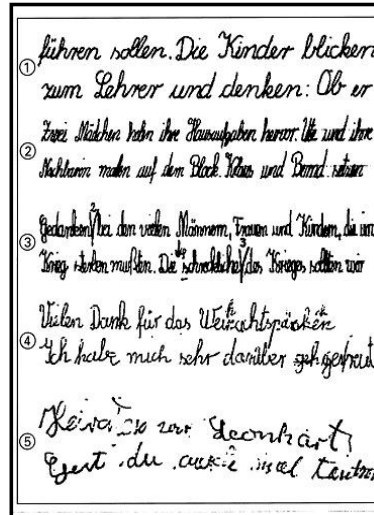 ① führen sollen. Die Kinder blicken
zum Lehrer und denken: Ob er
② Zwei Mädchen holen ihre Hausaufgaben hervor. Ute und ihre
Nachbarin malen auf dem Block. Klaus und Bernd setzen
③ Gedanken bei den vielen Männern, Frauen und Kindern, die im
Krieg sterben mußten. Die schreckliche des Krieges sollten wir
④ Vielen Dank für das
Ich habe mich sehr darüber gefreut
⑤ zur Leonhart
du mal